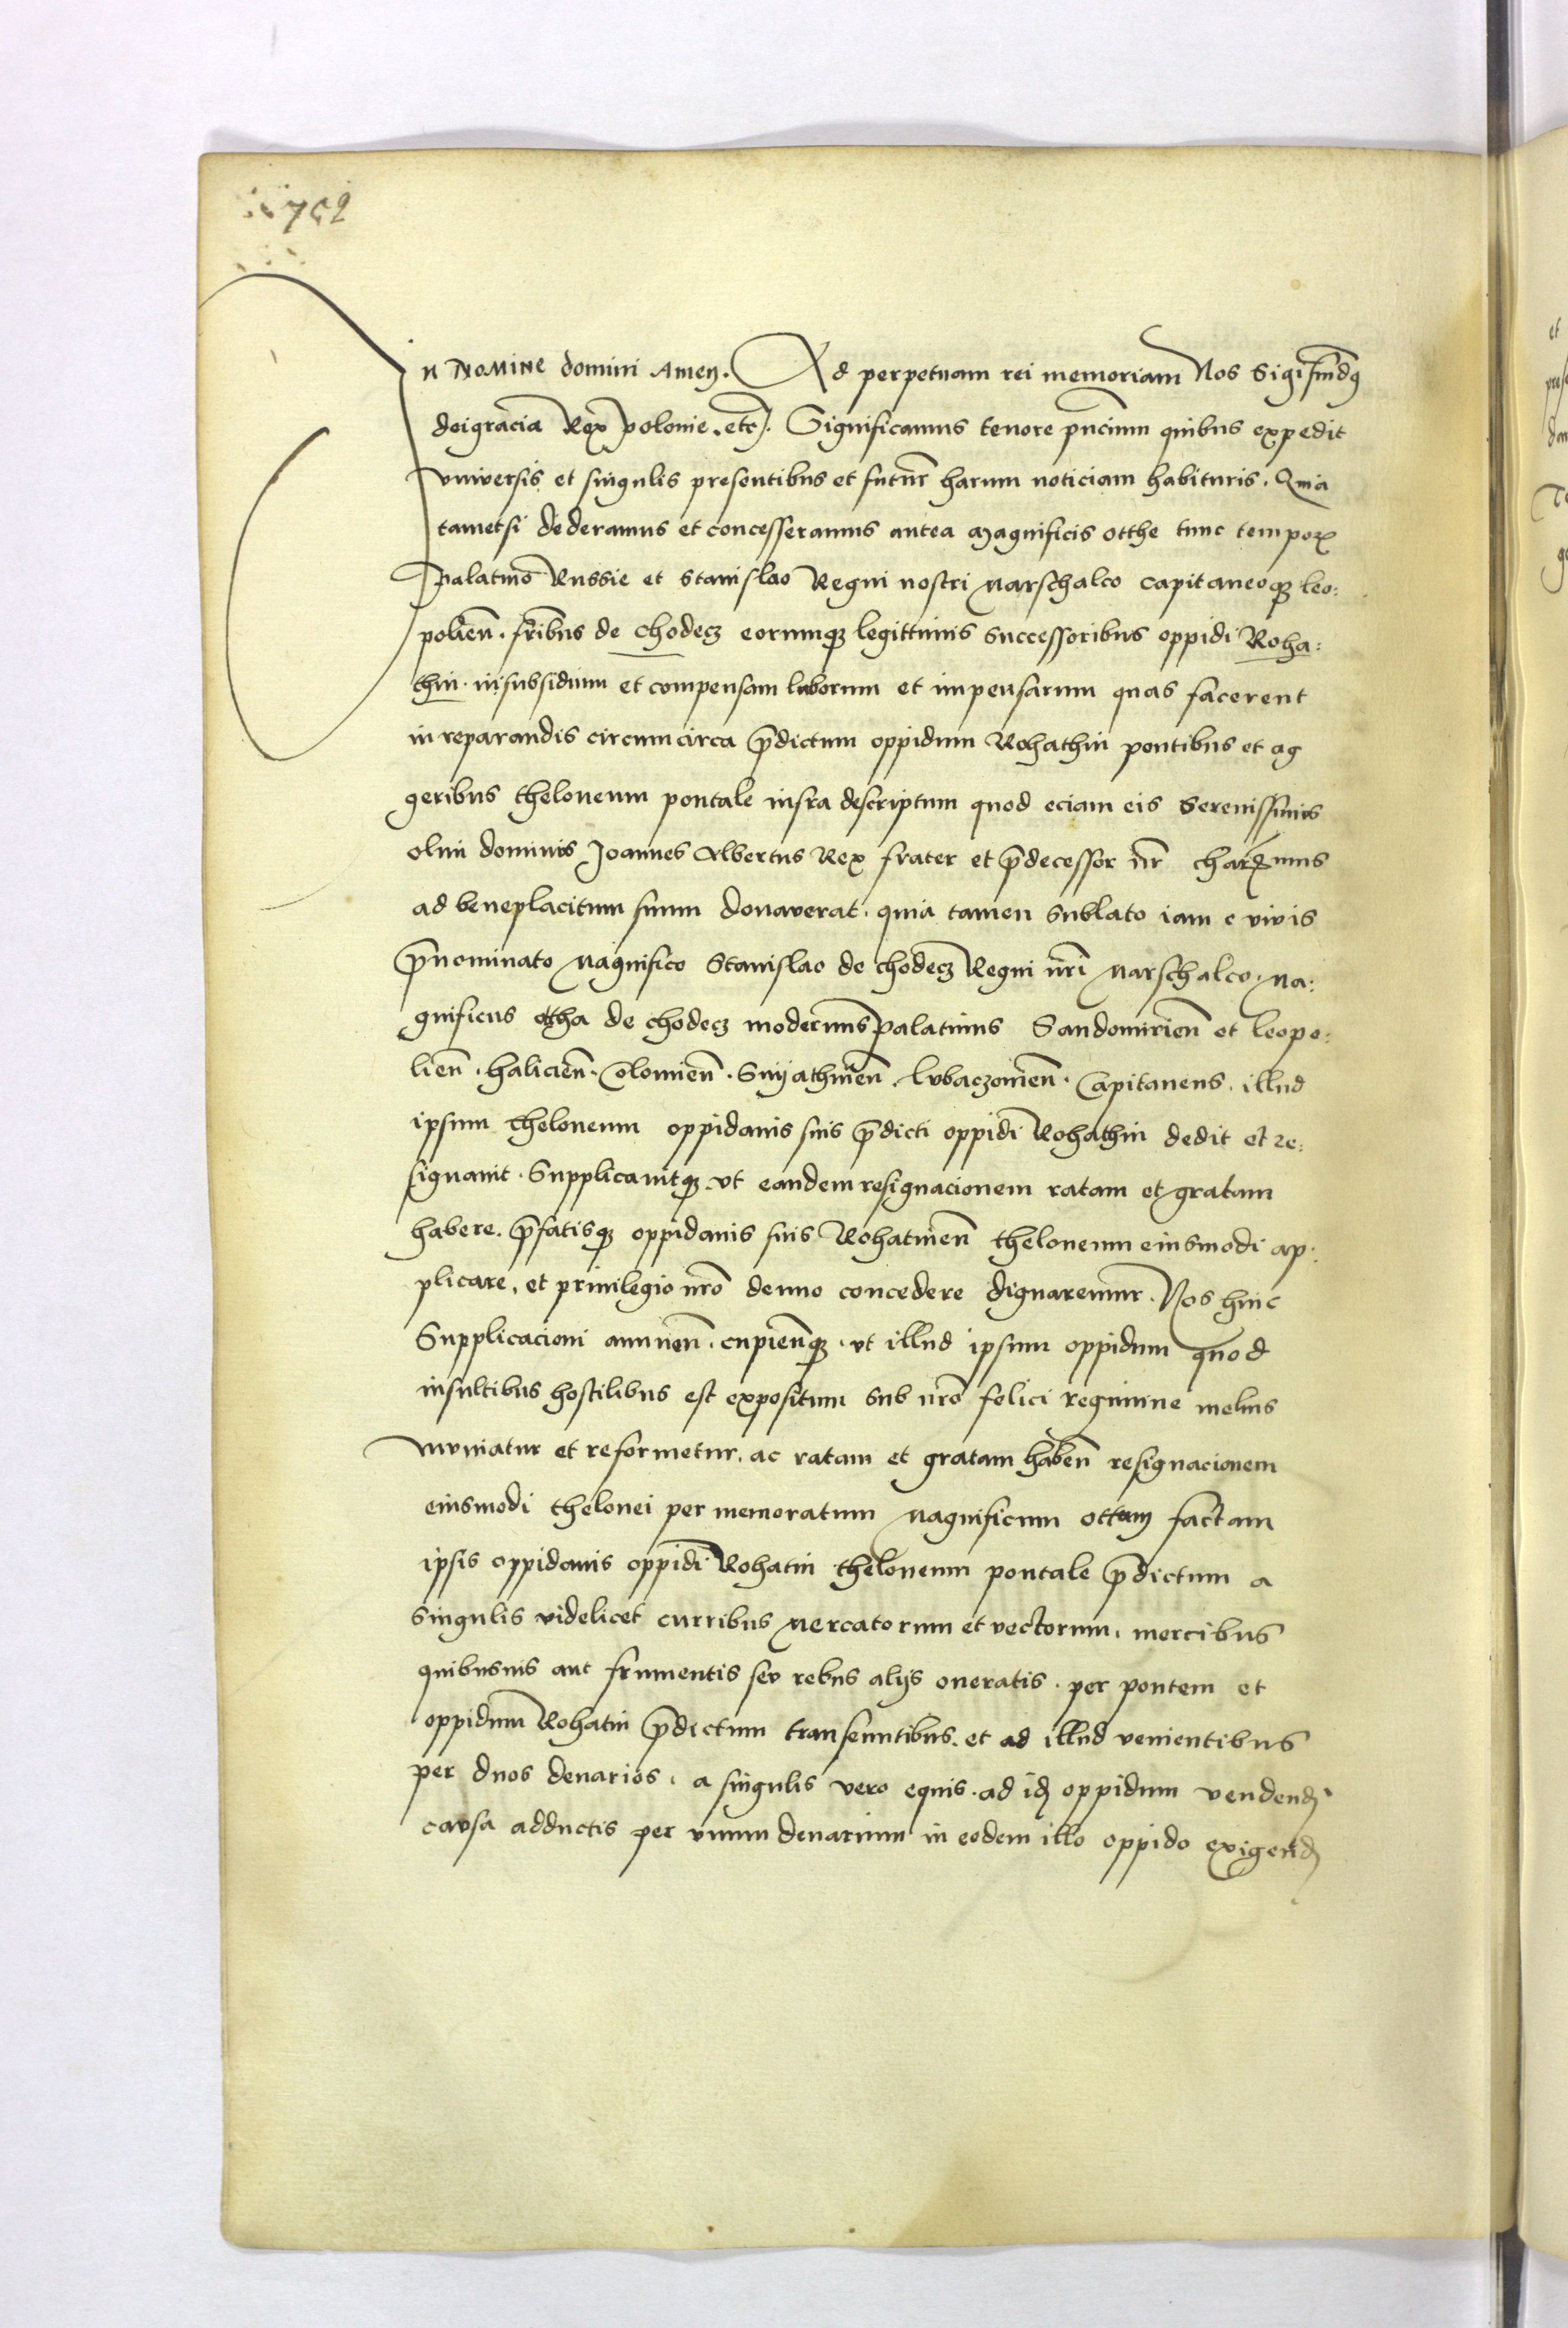 752
In Nomine domini Amen. Ad perpetuam rei memoriam Nos Sigismūdꝯ
dei gracia Rex polonie. etc. Significamus tenore pñcium quibus expedit
vniversis et singulis presentibus et futur̄ harum noticiam habituris. Quia
tametsi dederamus et concesseramus antea Magnificis otthe tunc temporꝭ
Palatino Russie et Stanislao Regni nostri Marschalco Capitaneoqꝫ leo:
polien̄. fr̄ibus de Chodecz eorumqꝫ legittimis successoribus oppidi Roha:
thin. in subsidium et compensam laborum et impensarum quas facerent
in reparandis circumcirca p̄dictum oppidum Rohathin pontibus et ag
geribus theloneum pontale infra descriptum quod eciam eis Serenissimus
olim dominus Joannes Albertus Rex frater et p̄decessor nr̄ charꝭimus
ad beneplacitum suum donaverat. quia tamen sublato iam e vivis
p̄nominato Magnifico Stanislao de Chodecz Regni nr̄i Marschalco. Ma:
gnificus ottha de Chodecz modernus Palatinus Sandomirien̄ et leopo:
lien̄. halicien̄. Colomien̄. Snijathinen̄. lvbaczovien̄. Capitaneus. illud
ipsum theloneum oppidanis suis p̄dicti oppidi Rohathin dedit et re:
signavit. Supplicavitqꝫ. vt eandem resignacionem ratam et gratam
habere. p̄fatisqꝫ oppidanis suis Rohatinen̄ theloneum eiusmodi ap:
plicare, et privilegio nr̄o denuo concedere dignaremur. Nos huic
Supplicacioni annuen̄. cupien̄qꝫ. vt illud ipsum oppidum quod
insultibus hostilibus est expositum sub nr̄o felici regimine melius
mvniatur et reformetur. ac ratam et gratam haben̄ resignacionem
eiusmodi thelonei per memoratum Magnificum ottam factam
ipsis oppidanis oppidi Rohatin theloneum pontale p̄dictum a
singulis videlicet curribus mercatorum et vectorum. mercibus
quibusuis aut frumentis sev rebus alijs oneratis. per pontem et
oppidum Rohatin p̄dictum transeuntibus. et ad illud venientibus
per duos denarios. a singulis vero equis. ad id oppidum vendend
cavsa adductis per vnum denarium in eodem illo oppido exigend